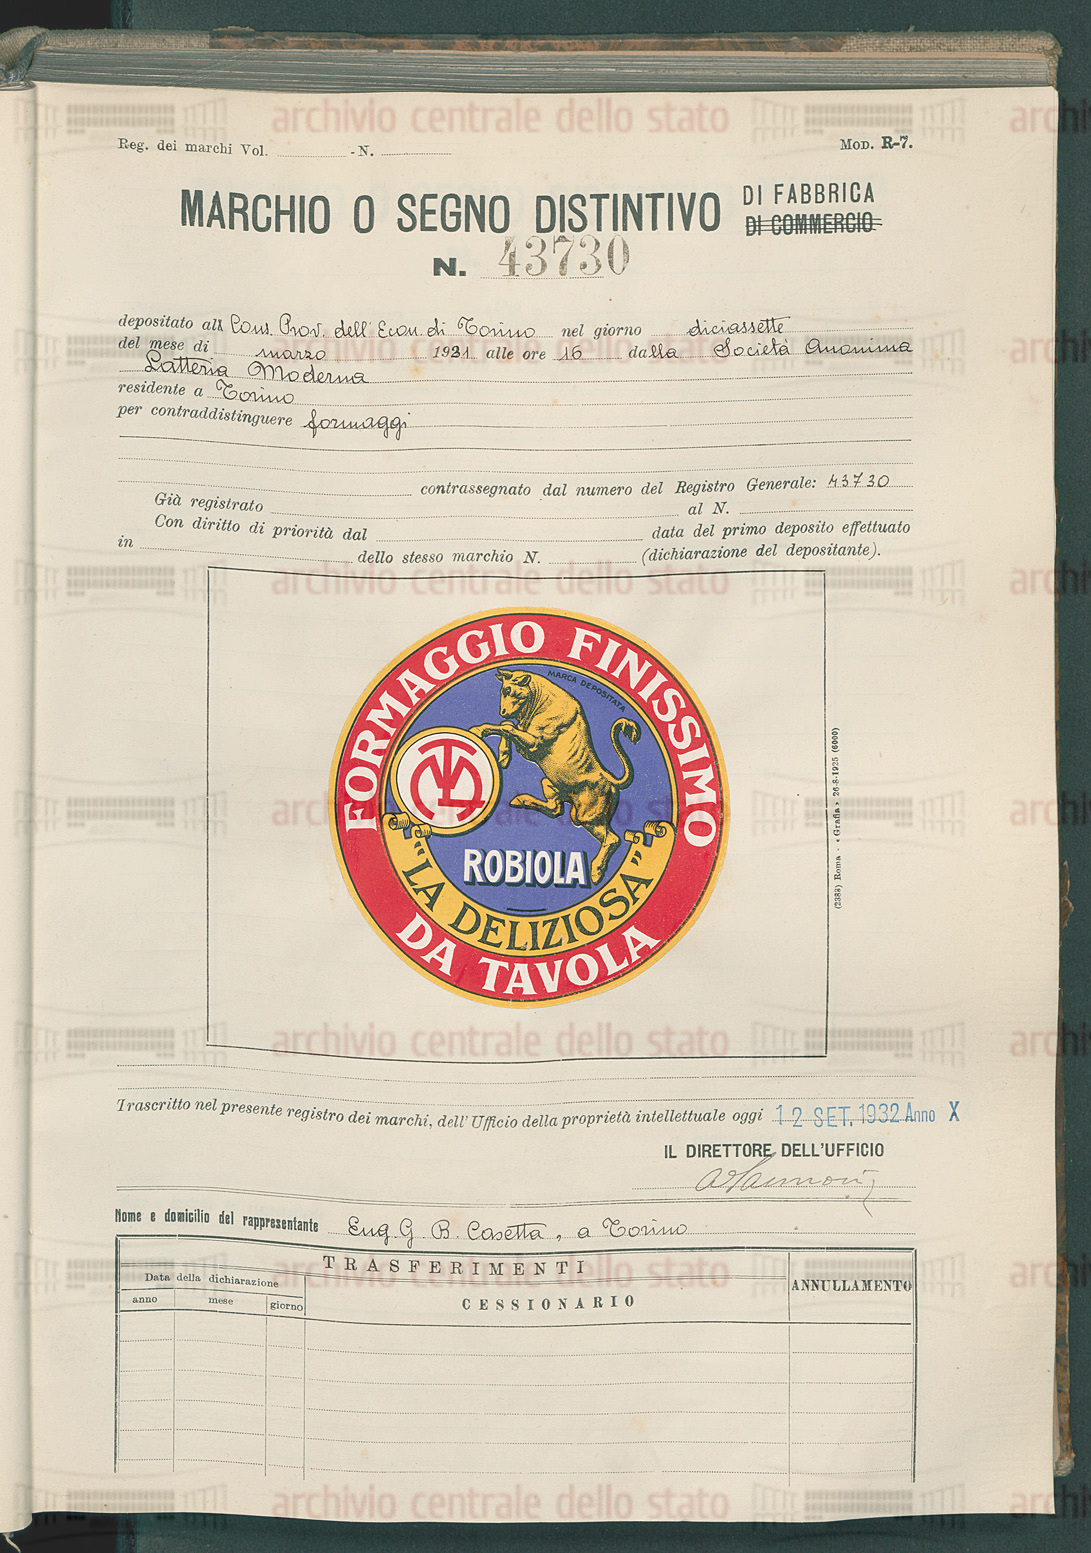 Reg. dei marchi Vol. - N.
MOD. R-7.
MARCHIO O SEGNO DISTINTIVO DI FABBRICA
DI COMMERCIO
N. 43730
depositato all Cons. Prov. dell'Econ. di Torino nel giorno diciassette
del mese di marzo 1931 alle ore 16 dalla Società Anonima
Latteria Moderna
residente a Torino
per contraddistinguere formaggi
contrassegnato dal numero del Registro Generale: 43730
Già registrato al N.
Con diritto di priorità dal data del primo deposito effettuato
in dello stesso marchio N. (dichiarazione del depositante).
FORMAGGIO FINISSIMO
MARCA DEPOSITATA
ROBIOLA
"LA DELIZIOSA"
DA TAVOLA
(2383) Roma - « Grafia » 26-8-1925 (6000)
Trascritto nel presente registro dei marchi, dell'Ufficio della proprietà intellettuale oggi 12 SET. 1932 Anno X
IL DIRETTORE DELL'UFFICIO
Nome e domicilio del rappresentante Eug. G. B. Casetta, a Torino
TRASFERIMENTI
Data della dichiarazione
ANNULLAMENTO
anno mese giorno
CESSIONARIO
archivio centrale dello stato